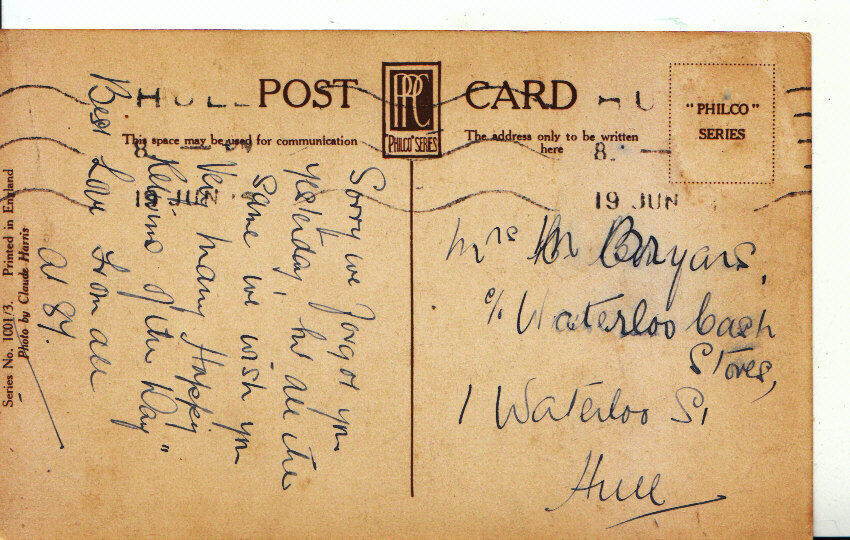 POST CARD
PPC
"PHILCO" SERIES
"PHILCO"
SERIES
This space may be used for communication
The address only to be written
here
HULL
HU
8.
8.
19 JUN
19 JUN
Sorry we forgot you
yesterday, but all the
same we wish you
Very many Happy
Returns of the Day"
Best Love from all
at 84.
Mrs M Bryars,
c/o Waterloo Cash
Stores,
1 Waterloo St
Hull
Series No. 1001/3. Printed in England
Photo by Claude Harris